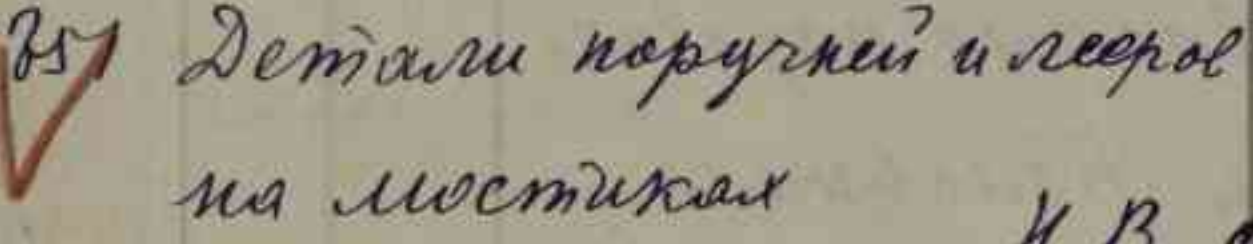 351 Детали поручней и лееров
на мостиках
Н В